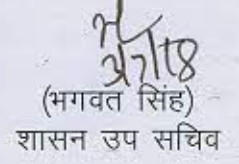 (भगवत सिंह)
शासन उप सचिव